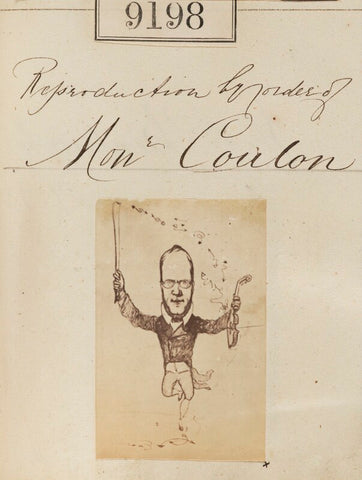 9198
Reproduction by order of
Monr Coulon